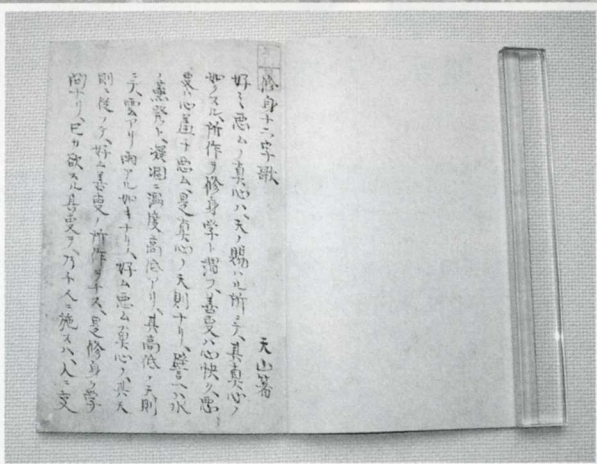 修身十六字歌
天山著
好ミ悪ムノ真心ハ、天ノ賜ハル所ニテ、其真心ノ
如クスル、所作ヲ修身学ト謂フ、善叓ハ心快ク、悪
叓ハ心羞チ悪ム、是真心ノ天則ナリ、譬ヘハ水
ノ蒸発ト、凝凅ニ温度高低アリ、其高低ノ天則
ニテ、雲アリ雨アル如キナリ、好ム悪ムノ真心ノ、其天
則ニ従ツテ、好ム善叓ノ所作ヲナス、是修身ノ学
問ナリ、己カ欲スル其叓ヲ、乃チ人ニ施スハ、人ニ交